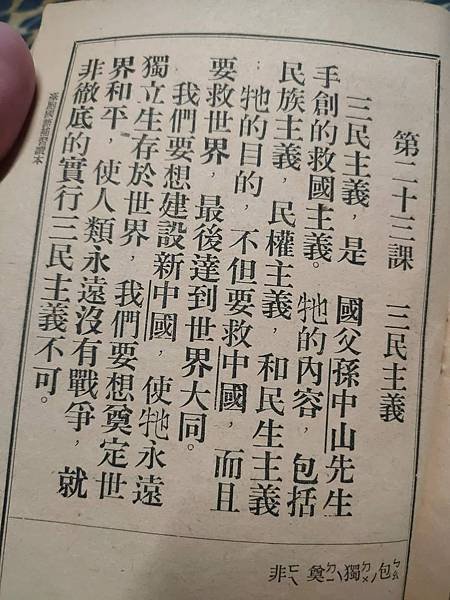 第二十三課　三民主義
三民主義，是　國父孫中山先生
手創的救國主義。牠的內容，包括
民族主義，民權主義，和民生主義
；牠的目的，不但要救中國，而且
要救世界，最後達到世界大同。
我們要想建設新中國，使牠永遠
獨立生存於世界，我們要想奠定世
界和平，使人類永遠沒有戰爭，就
非徹底的實行三民主義不可。
包ㄅㄠ 獨ㄉㄨˊ 奠 非ㄈㄟ
臺胞國語補習讀本